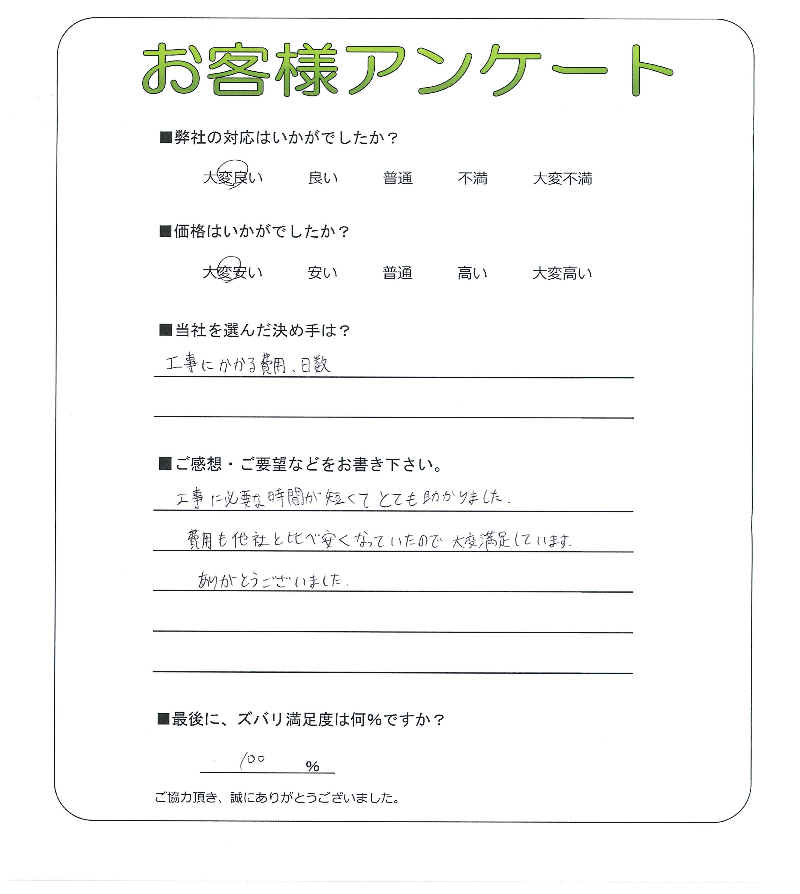 お客様アンケート
■弊社の対応はいかがでしたか？
大変良い 良い 普通 不満 大変不満
■価格はいかがでしたか？
大変安い 安い 普通 高い 大変高い
■当社を選んだ決め手は？
工事にかかる費用、日数
■ご感想・ご要望などをお書き下さい。
工事に必要な時間が短くてとても助かりました.
費用も他社と比べ安くなっていたので 大変満足しています.
ありがとうございました.
■最後に、ズバリ満足度は何%ですか？
100 %
ご協力頂き、誠にありがとうございました。